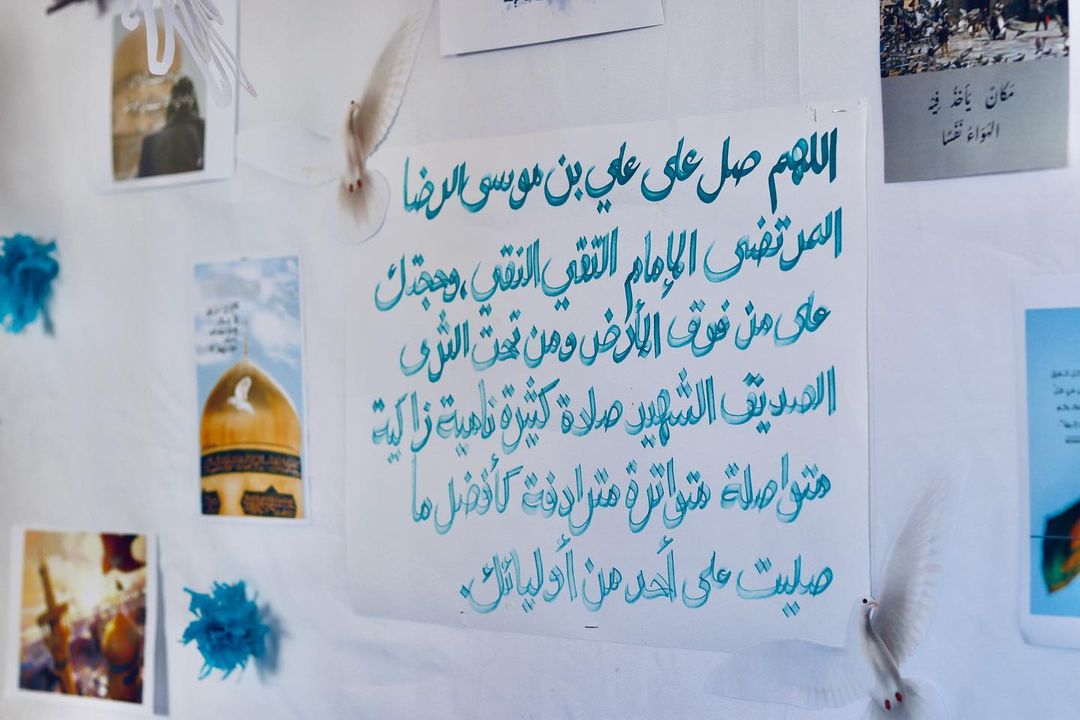 اللهم صل على علي بن موسى الرضا
المرتضى الإمام التقي النقي، وحجتك
على من فوق الأرض ومن تحت الثرى
الصديق الشهيد صلاة كثيرة نامية زاكية
متواصلة متواترة مترادفة كأفضل ما
صليت على أحد من أوليائك.
مَكانٌ يَأخذُ فِيْهِ
الهَوَاءُ نَفَسًا